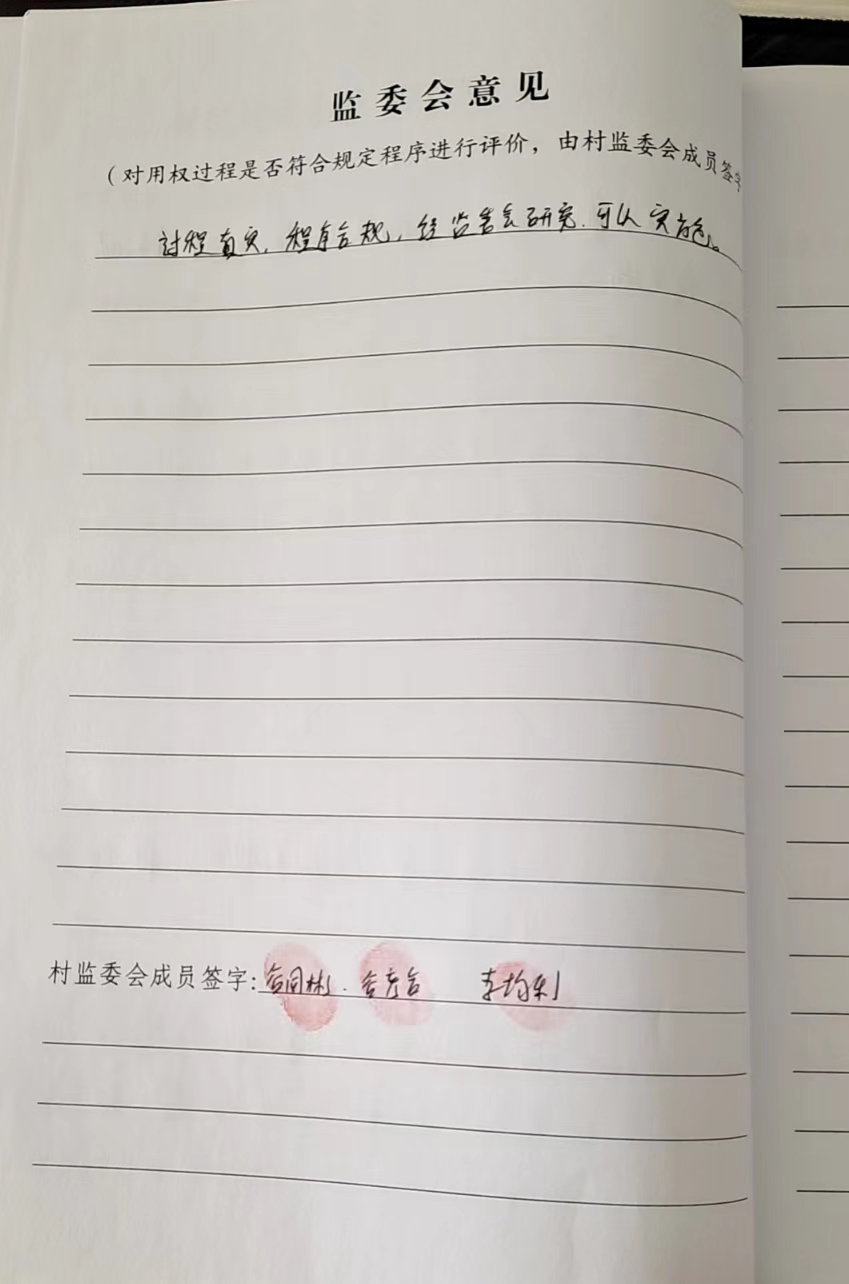 监委会意见
（对用权过程是否符合规定程序进行评价，由村监委会成员签字
过程真实，程序合规，经监委会研究，可以实施。
村监委会成员签字: 李均利